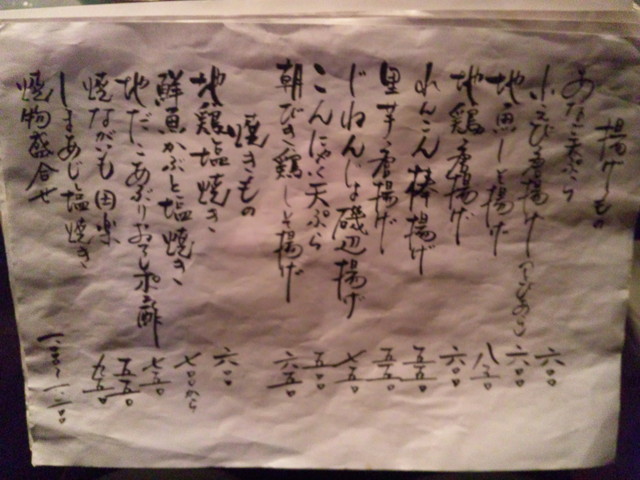 揚げもの
あなご天ぷら 六〇〇
小えび唐揚げ 六〇〇
地魚しそ揚げ 八五〇
地鶏唐揚げ 六〇〇
れんこん棒揚げ 五五〇
里芋唐揚げ 五五〇
じねんじょ磯辺揚げ 七五〇
こんにゃく天ぷら 五五〇
朝びき鶏しそ揚げ 六五〇
焼きもの
地鶏塩焼き 六〇〇
鮮魚かぶと塩焼き 七〇〇から
地だこあぶりおろしポン酢 七五〇
焼ながいも田楽 五五〇
しまあじ塩焼き 九五〇
焼物盛合せ